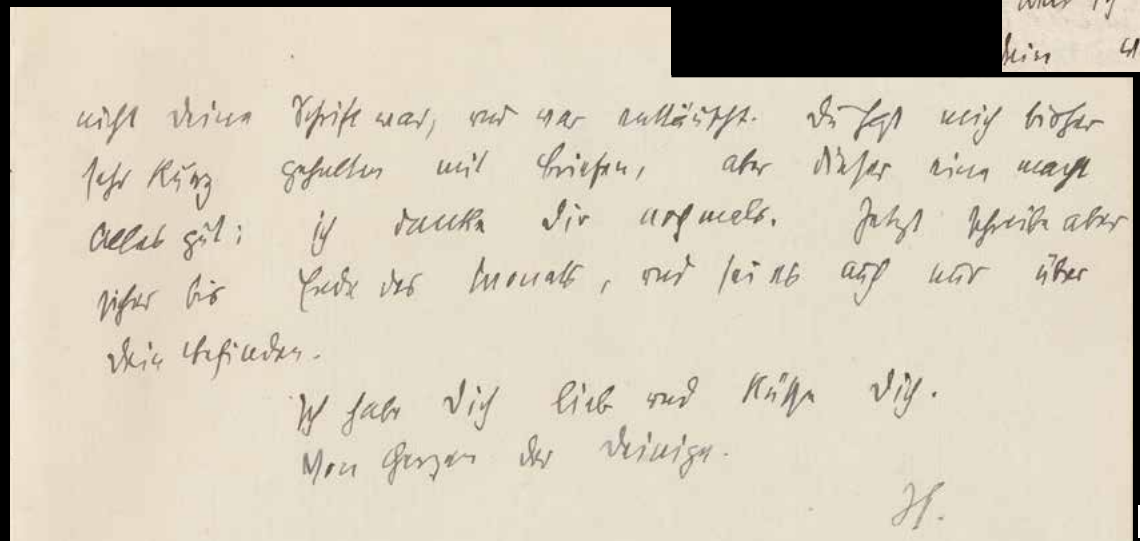 nicht deine Schrift war, und war enttäuscht. Du hast mich bisher
sehr kurz gehalten mit Briefen, aber dieser eine macht
Alles gut; ich danke Dir nochmals. Jetzt schreibe aber
sicher bis Ende des Monats, und sei es auch nur über
Dein Befinden.
Ich habe Dich lieb und küsse Dich.
Von Herzen der Deinige.
H.